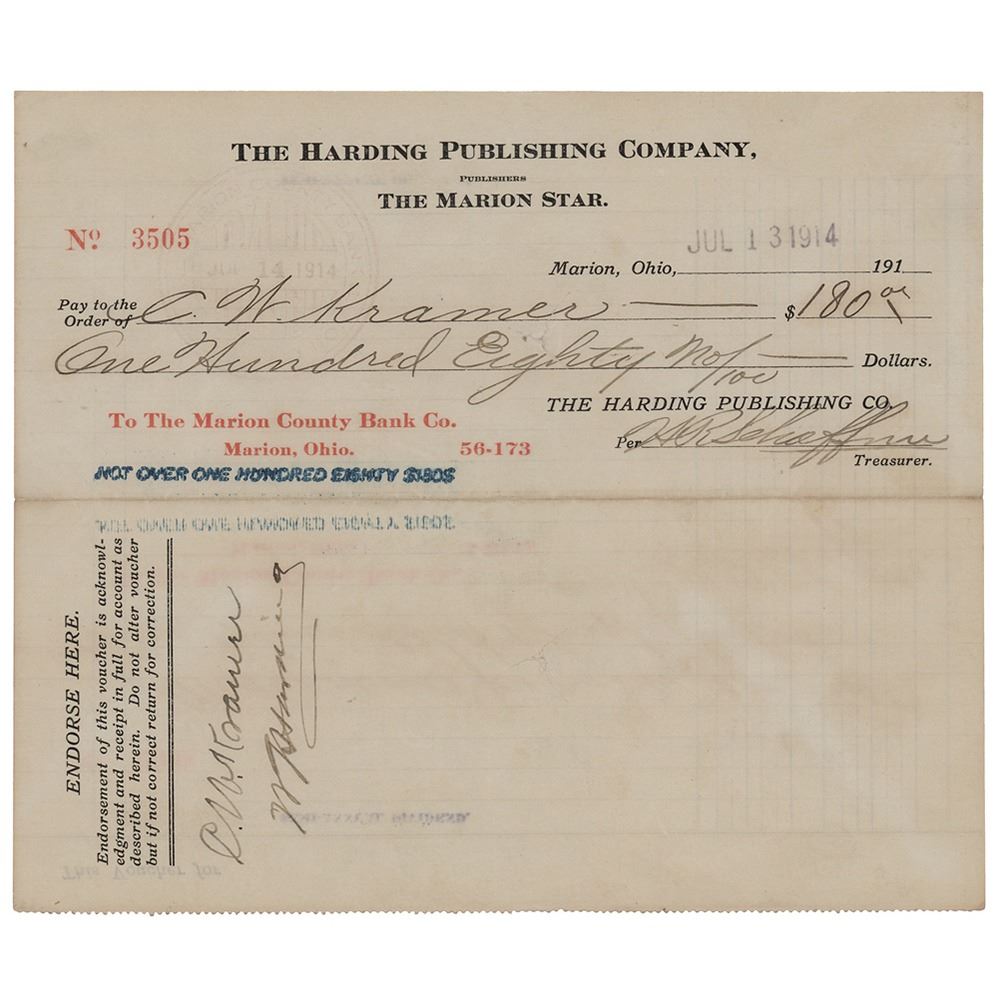 THE HARDING PUBLISHING COMPANY,
PUBLISHERS
THE MARION STAR.
Nº 3505
JUL 13 1914
JUL 14 1914
Marion, Ohio, 191
Pay to the Order of C. W. Kramer $180 00/
One Hundred Eighty No/100 Dollars.
THE HARDING PUBLISHING CO.
To The Marion County Bank Co.
Marion, Ohio. 56-173
Per H R Schaffner
Treasurer.
NOT OVER ONE HUNDRED EIGHTY $180$
ENDORSE HERE.
Endorsement of this voucher is acknowl-
edgment and receipt in full for account as
described herein. Do not alter voucher
but if not correct return for correction.
C. W. Kramer
W G Harding
SEMI-ANNUAL DIVIDEND.
This Voucher for